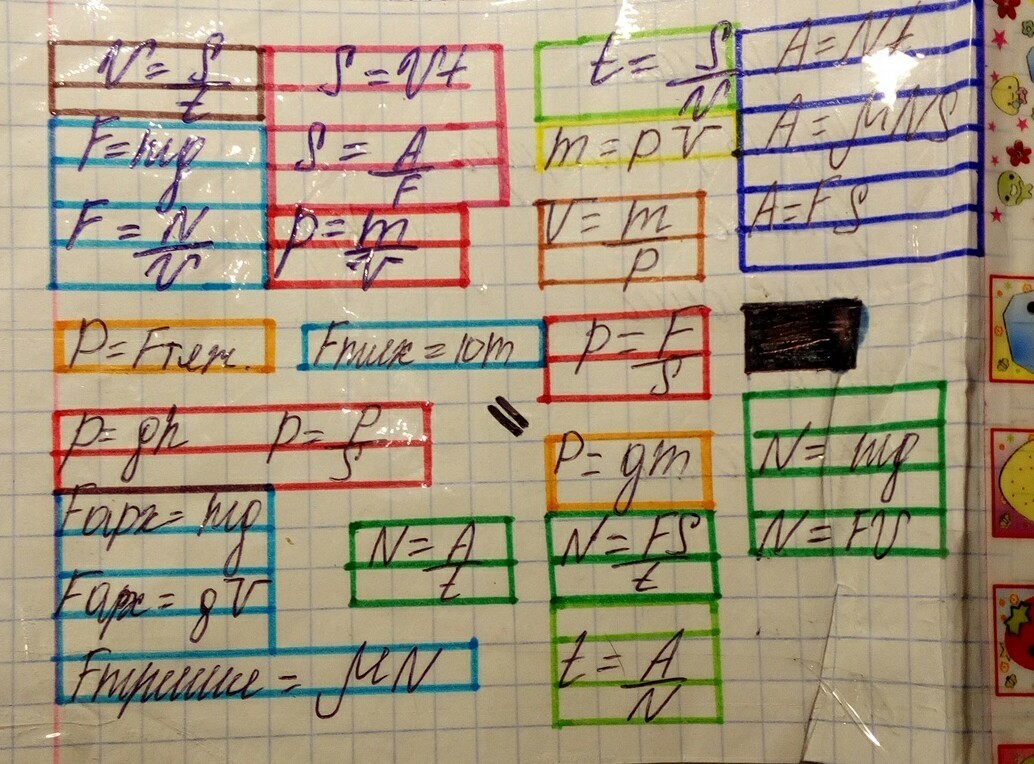 V = S/t
S = Vt
t = S/V
A = Nt
F = mg
S = A/F
m = pV
A = μNS
F = N/V
p = m/V
V = m/p
A = FS
P = Fтяж.
Fтяж = 10m
p = F/S
p = gh p = P/S
P = gm
N = mg
Fарх = mg
N = A/t
N = FS/t
N = FV
Fарх = gV
Fтрение = μN
t = A/N